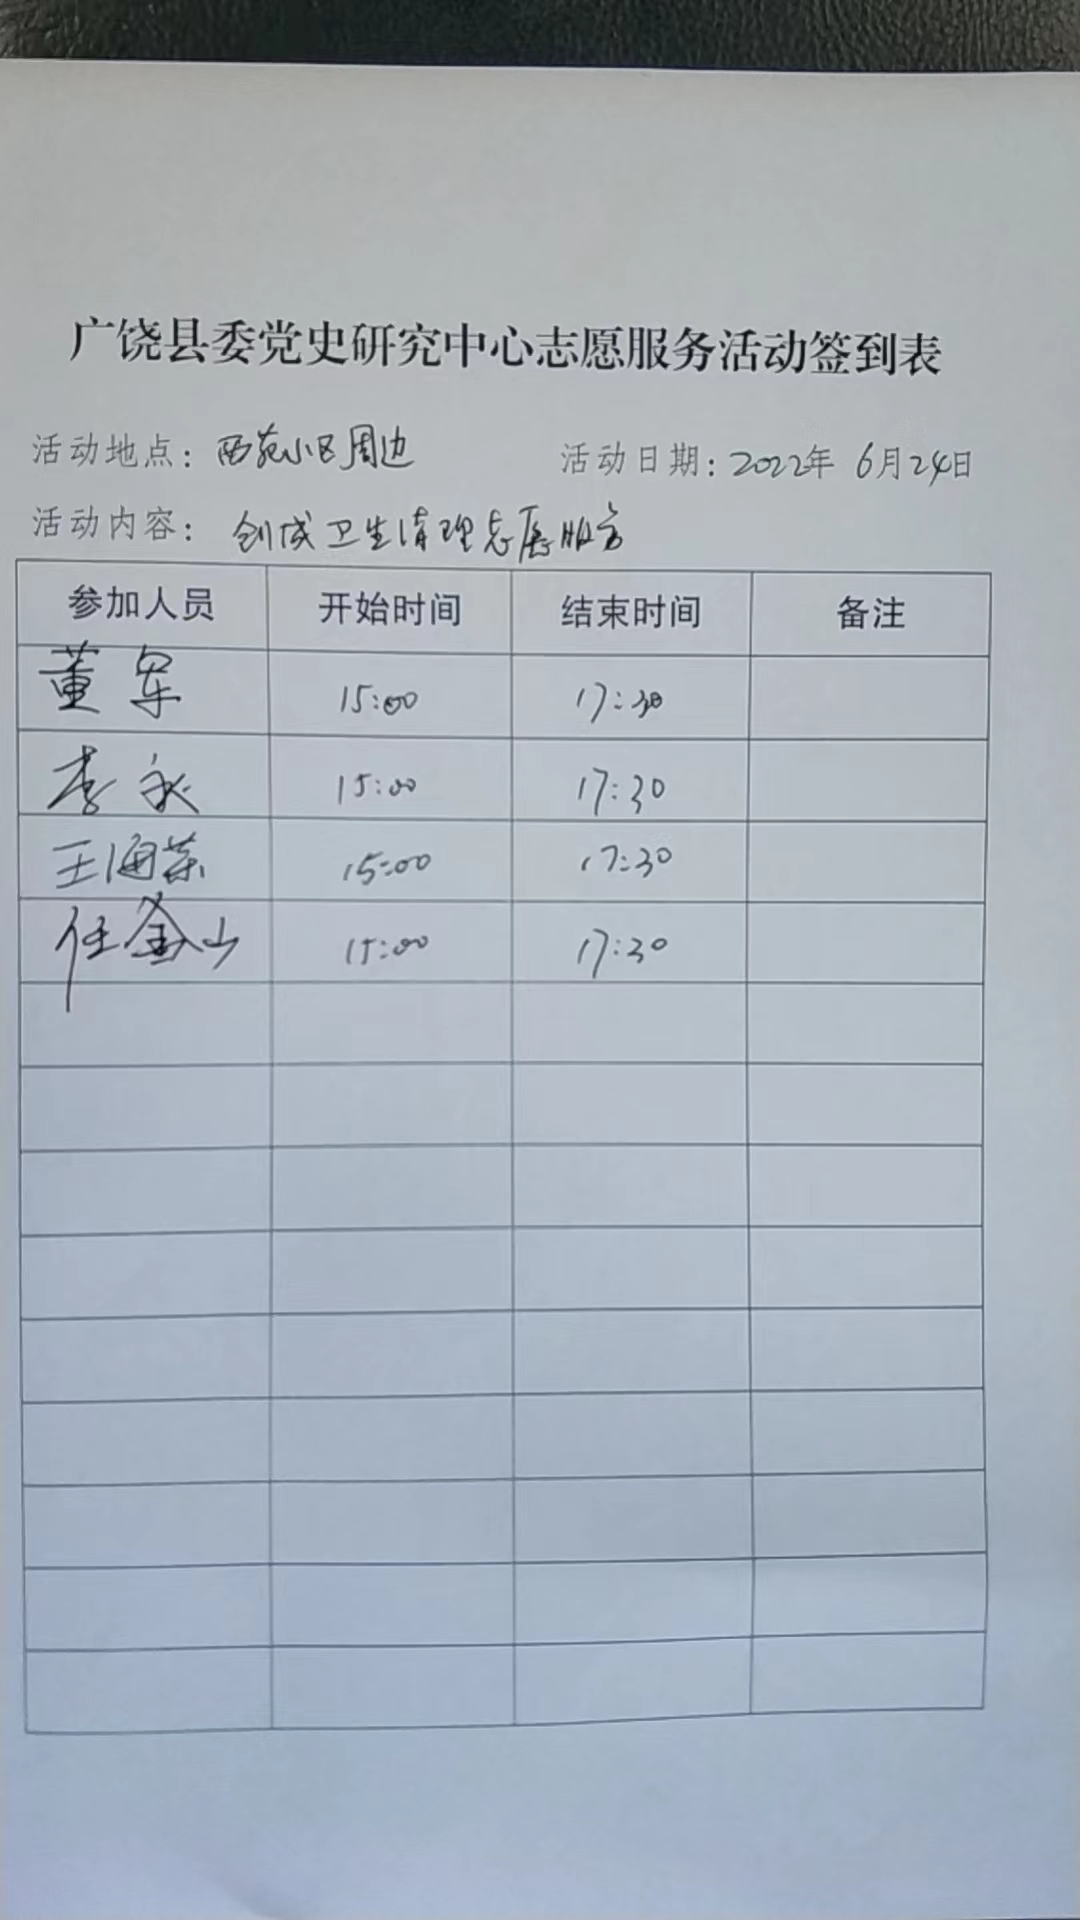 广饶县委党史研究中心志愿服务活动签到表
活动地点：西苑小区周边 活动日期：2022年 6月24日
活动内容：创城卫生清理志愿服务
参加人员 开始时间 结束时间 备注
董军 15:00 17:30
李永 15:00 17:30
王海荣 15:00 17:30
任金山 15:00 17:30